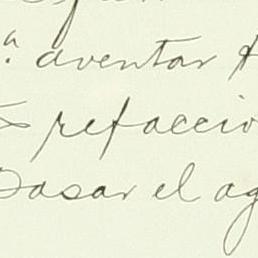 ª aventar
refaccio
Pasar el ag